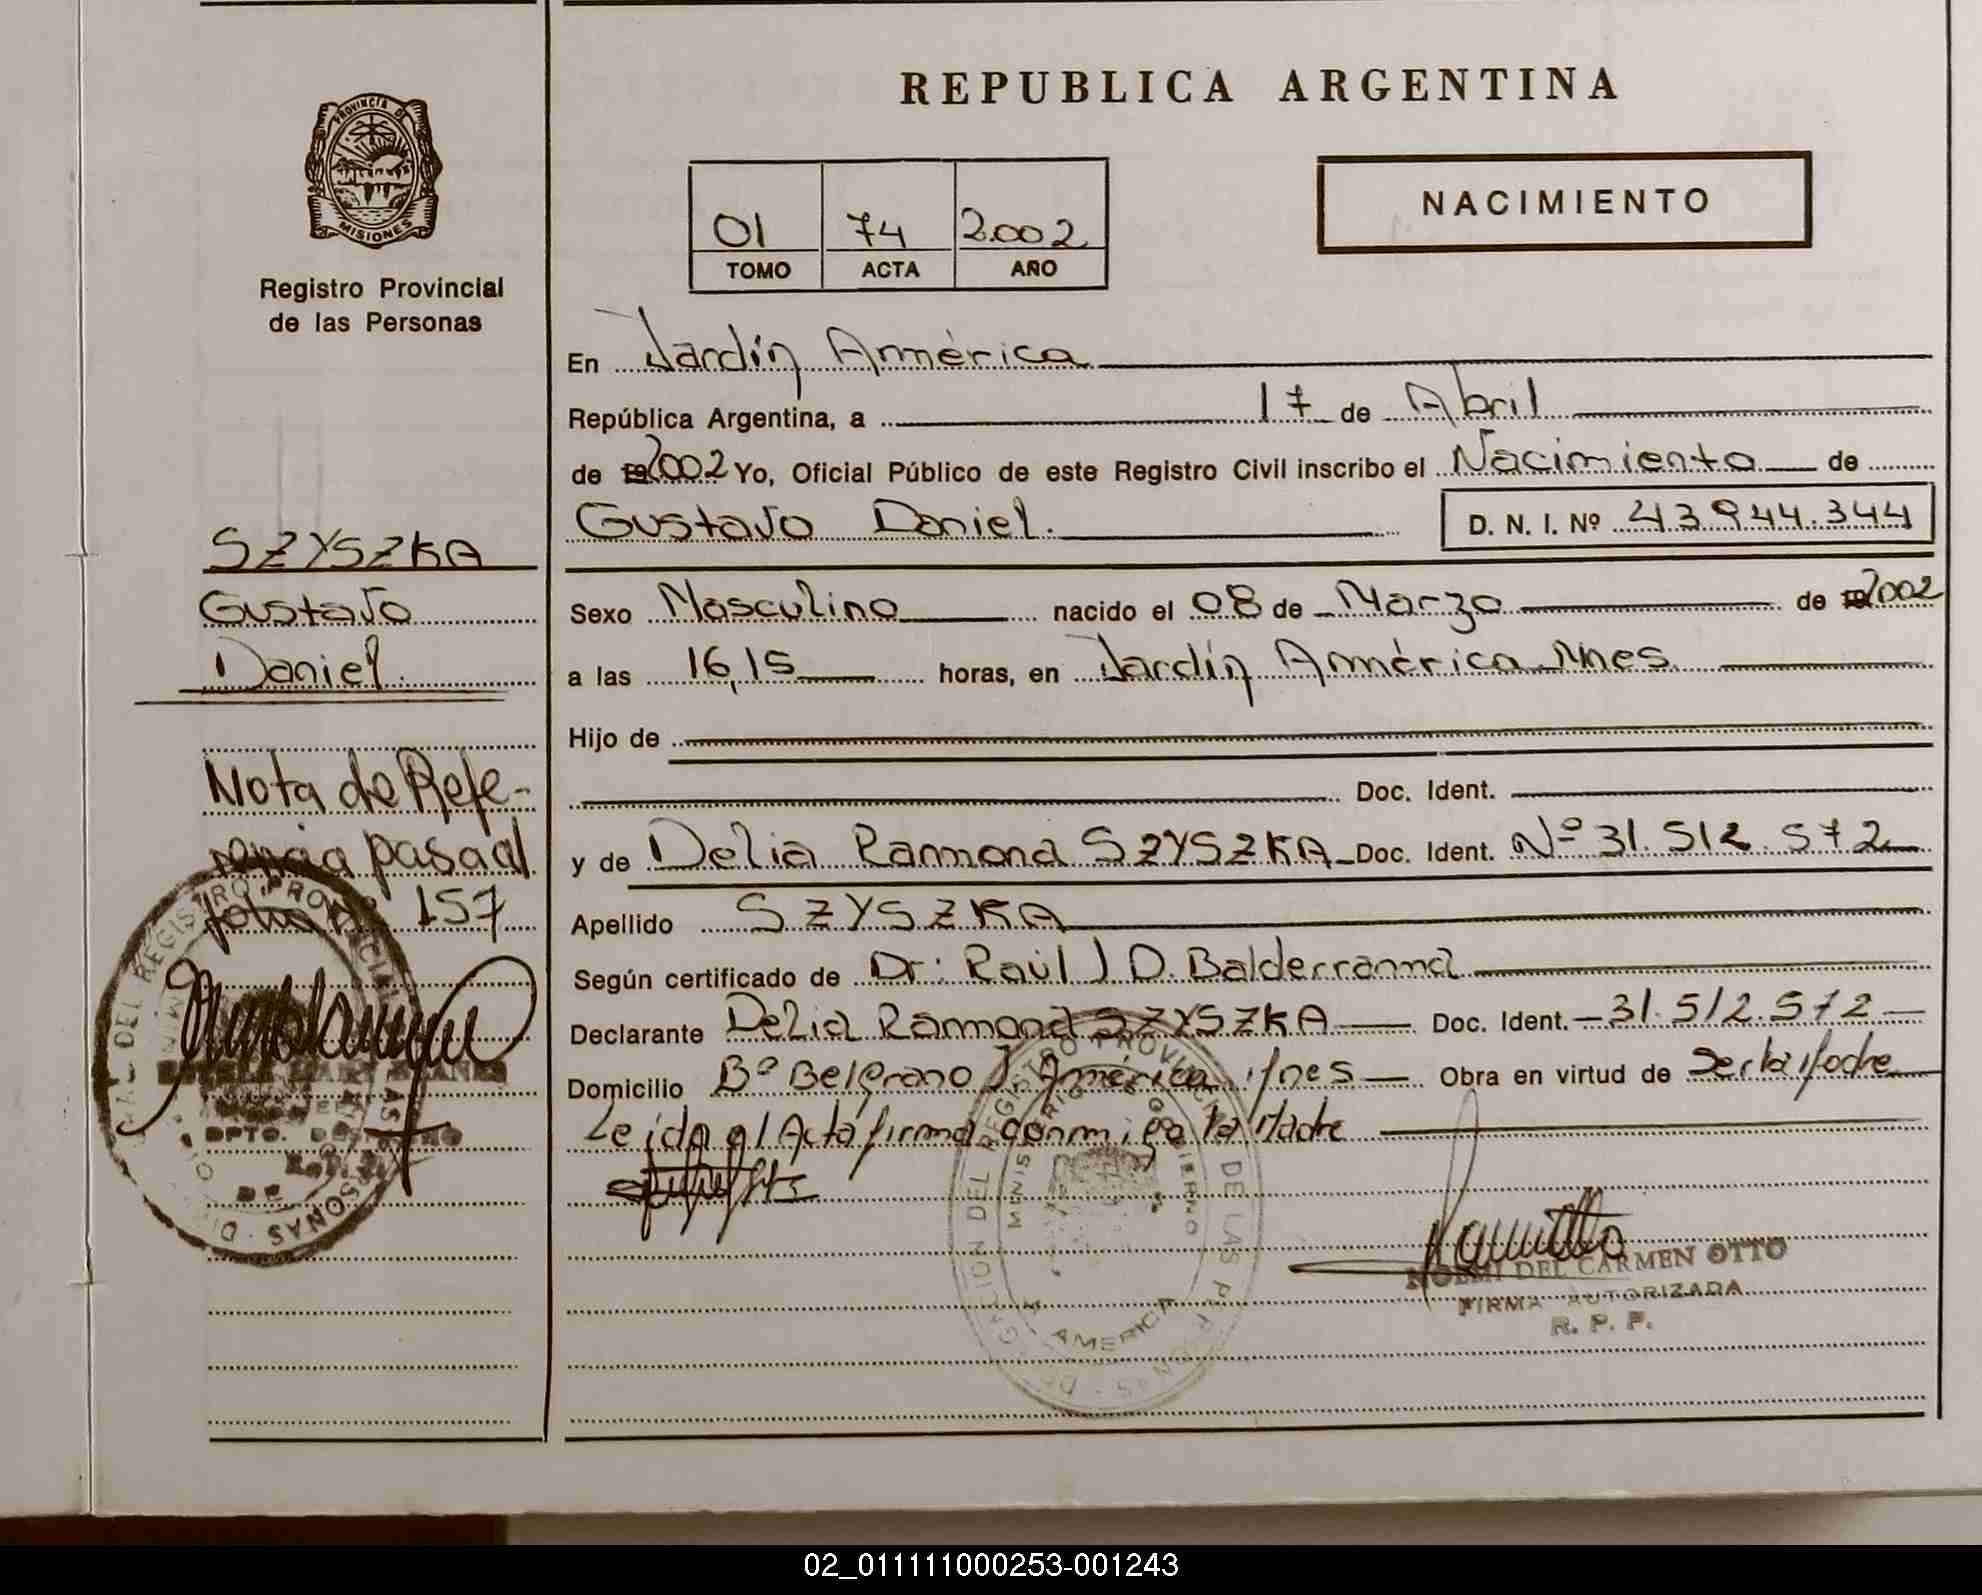 REPUBLICA ARGENTINA
PROVINCIA DE
MISIONES
Registro Provincial
de las Personas
01 74 2.002
TOMO ACTA AÑO
NACIMIENTO
En Jardín América
República Argentina, a 17 de Abril
de 2002 Yo, Oficial Público de este Registro Civil inscribo el Nacimiento de
Gustavo Daniel.
D. N. I. Nº 43944.344
SZYSZKA
Gustavo
Daniel.
Sexo Masculino nacido el 08 de Marzo de 2002
a las 16,15 horas, en Jardín América Mnes.
Hijo de
Doc. Ident.
y de Delia Ramona SZYSZKA Doc. Ident. Nº 31.512.572
Apellido SZYSZKA
Según certificado de Dr: Raúl J D. Balderrama
Declarante Delia Ramona SZYSZKA Doc. Ident. 31.512.572
Domicilio Bº Belgrano J. América Mnes Obra en virtud de Ser la Madre
Leida el Acta firma conmigo la Madre
Nota de Refe-
rencia pasa al
folio Nº 157
NOEMI DEL CARMEN OTTO
FIRMA AUTORIZADA
R. P. P.
02_011111000253-001243